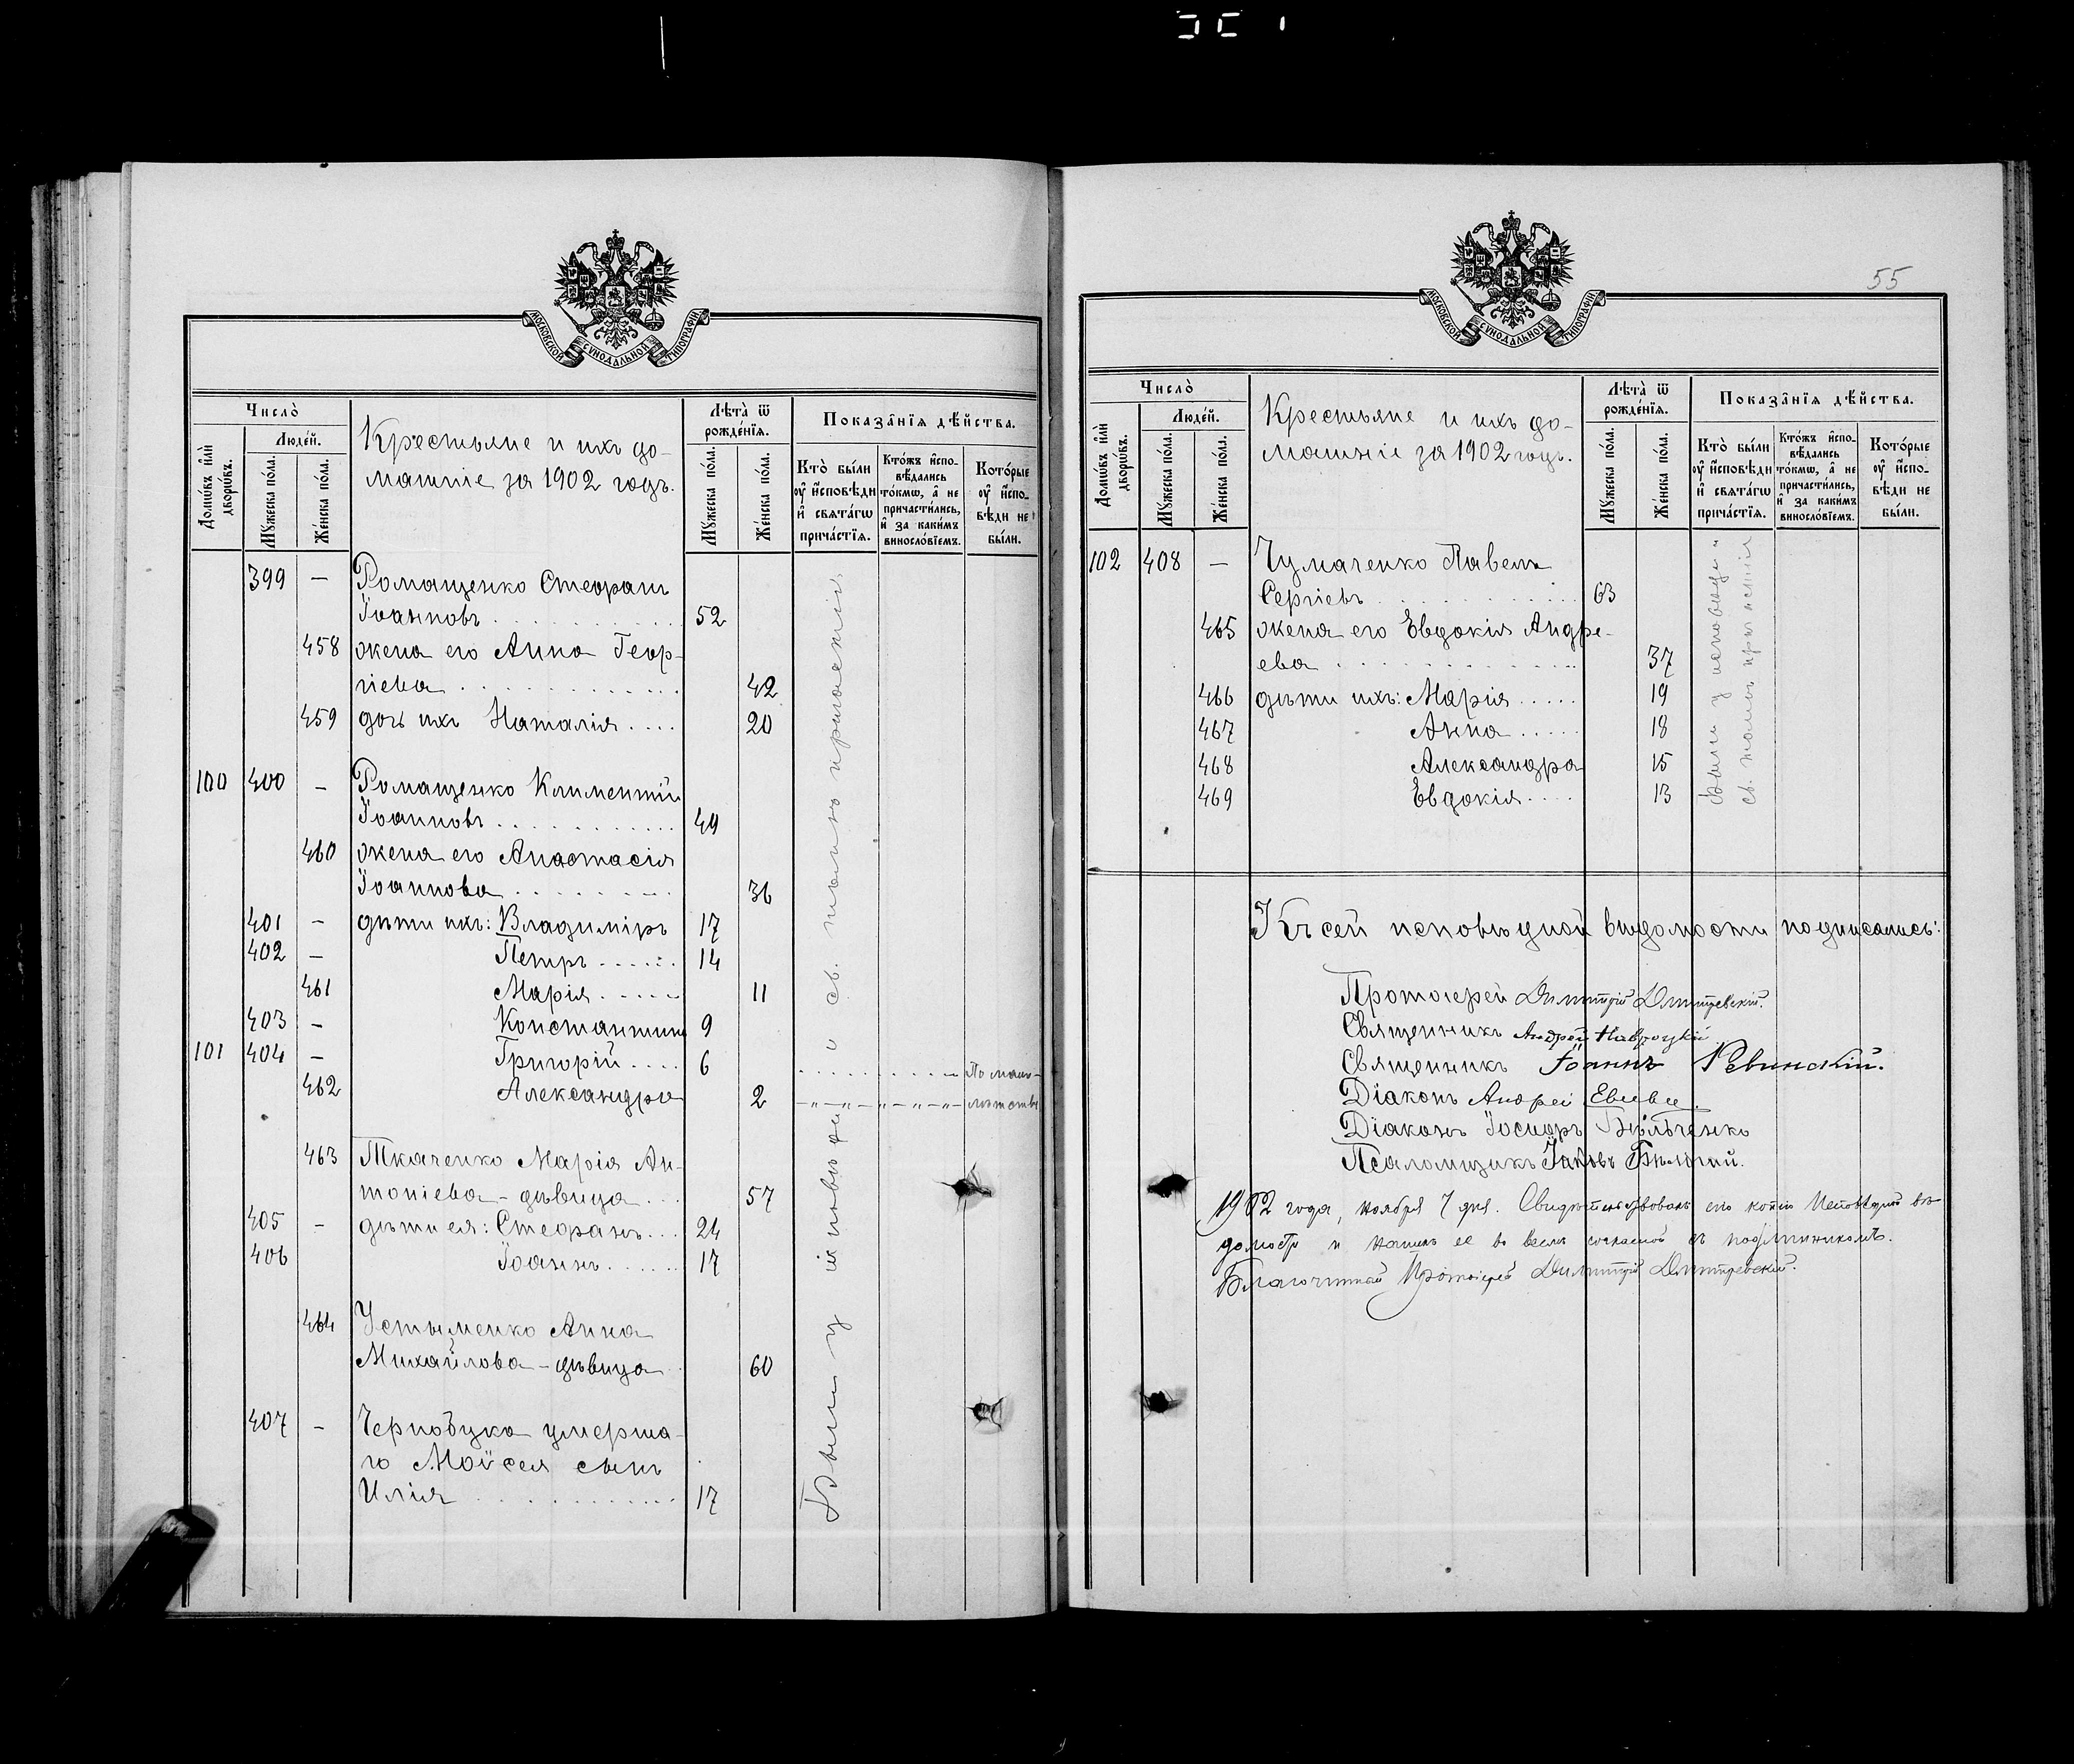 МОСКОВСКОЙ СУНОДАЛЬНОЙ ТИПОГРАФІИ
Число̀
Людей.
Домѡвъ и҆лѝ дворѡвъ.
Мꙋжеска по́ла.
Же́нска по́ла.
Крестьяне и ихъ до-
машніе за 1902 годъ.
Лѣта̀ ѿ рожде́нїѧ.
Мꙋжеска по́ла.
Же́нска по́ла.
Показа̂нїѧ дѣ́йства.
Кто̀ бы́ли ᲂу҆ и҆сповѣди и҆ свѧта́гѡ прича́стїѧ.
Кто́жъ и҆спо-вѣдались то́кмѡ, а҆ не причасти́лись, и҆ за каки́мъ винослові́емъ.
Кото́рые ᲂу҆ и҆спо-вѣди не бы́ли.
399 — Ромащенко Стефанъ
Іоанновъ . . . . . . . . . . 52
458 жена его Анна Геор-
гіева . . . . . . . . . . . . 42
459 дочь ихъ Наталія . . . . 20
100 400 — Ромащенко Климентій
Іоанновъ . . . . . . . . . . . 49
460 жена его Анастасія
Іоаннова . . . . . . . . . 36
401 - дѣти ихъ: Владиміръ 17
402 - Петръ . . . . . . 14
461 Марія . . . . . 11
403 - Константинъ 9
101 404 — Григорій . . . . 6 По мало-
462 Александра 2 лѣтству
463 Ткаченко Марія Ан-
тоніева - дѣвица . . . 57
405 - дѣти ея: Стефанъ . . . 24
406 Іоаннъ . . . . . . 17
464 Устыменко Анна
Михайлова - дѣвица 60
407 — Черновука умерша-
го Моѵсея сынъ
Илія . . . . . . . . . . . . 17
Были у исповѣди и св. тайнъ причастія
55
МОСКОВСКОЙ СУНОДАЛЬНОЙ ТИПОГРАФІИ
Число̀
Людей.
Домѡвъ и҆лѝ дворѡвъ.
Мꙋжеска по́ла.
Же́нска по́ла.
Крестьяне и ихъ до-
машніе за 1902 годъ.
Лѣта̀ ѿ рожде́нїѧ.
Мꙋжеска по́ла.
Же́нска по́ла.
Показа̂нїѧ дѣ́йства.
Кто̀ бы́ли ᲂу҆ и҆сповѣди и҆ свѧта́гѡ прича́стїѧ.
Кто́жъ и҆спо-вѣдались то́кмѡ, а҆ не причасти́лись, и҆ за каки́мъ винослові́емъ.
Кото́рые ᲂу҆ и҆спо-вѣди не бы́ли.
102 408 — Чумаченко Павелъ
Сергіевъ . . . . . . . . . . . 63
465 жена его Евдокія Андре-
ева . . . . . . . . . . . . . 37
466 дѣти ихъ: Марія . . . . . 19
467 Анна . . . . . 18
468 Александра 15
469 Евдокія . . . . 13
Были у исповѣди и
св. причастія
Къ сей исповѣдной вѣдомости подписались:
Протоіерей Димитрій Дмитревскій.
Священникъ Андрей Навроцкій
Священникъ Іоаннъ Ревинскій.
Діаконъ Андрей
Діаконъ Іосифъ Бѣльченко
Псаломщикъ Іаковъ
1902 года, ноября 7 дня. Свидѣтельствовалъ сію копію Исповѣдной вѣ-
домости и нашелъ ее во всемъ согласной съ подлинникомъ.
Благочинный Протоіерей Димитрій Дмитревскій.